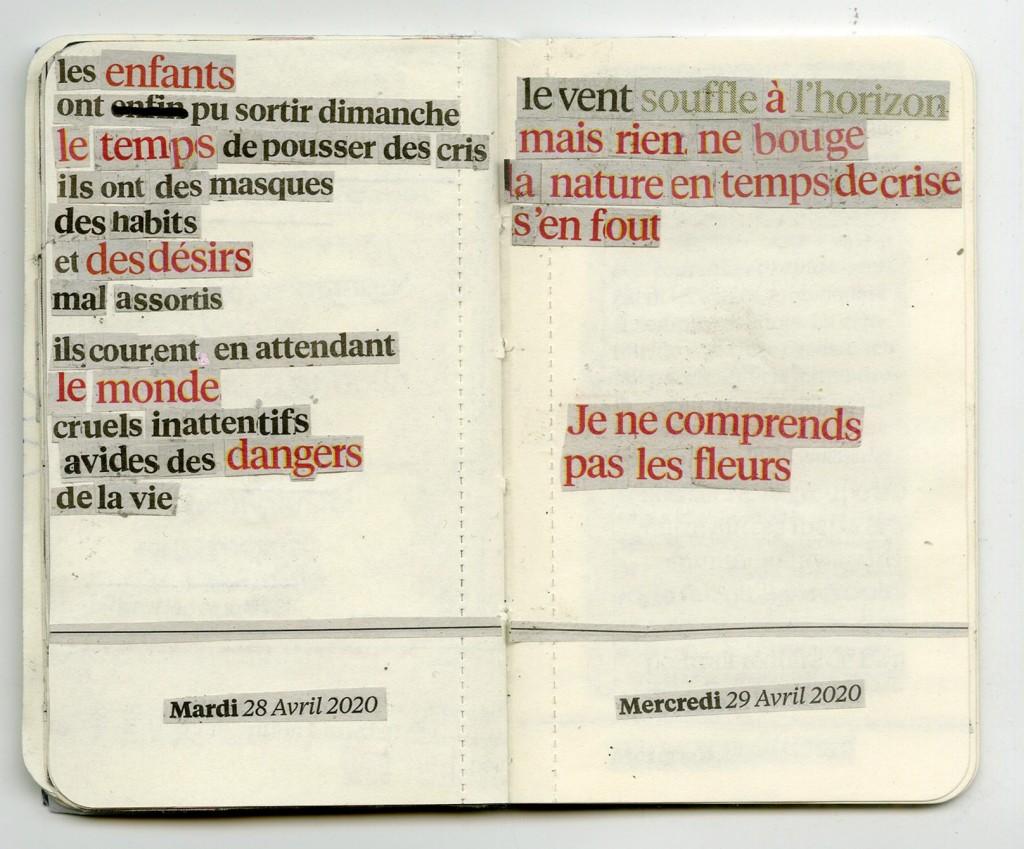 les enfants
ont enfin pu sortir dimanche
le temps de pousser des cris
ils ont des masques
des habits
et des désirs
mal assortis
ils courent en attendant
le monde
cruels inattentifs
avides des dangers
de la vie
Mardi 28 Avril 2020
le vent souffle à l'horizon
mais rien ne bouge
la nature en temps de crise
s'en fout
Je ne comprends
pas les fleurs
Mercredi 29 Avril 2020